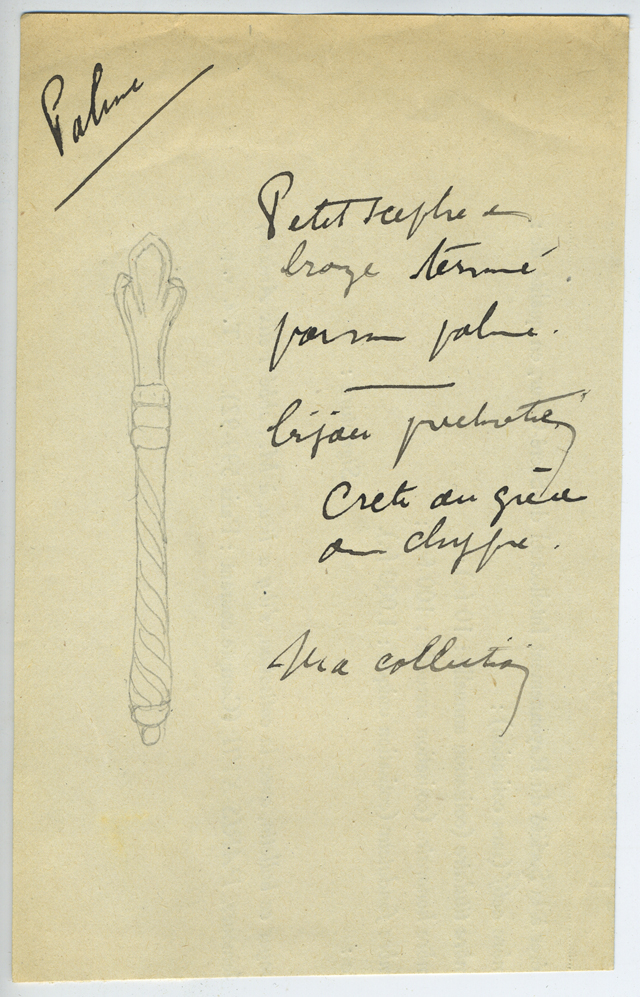 Palme
Petit sceptre en
bronze terminé
par une palme.
bijou
Crete ou grèce
ou chypre.
Ma collection